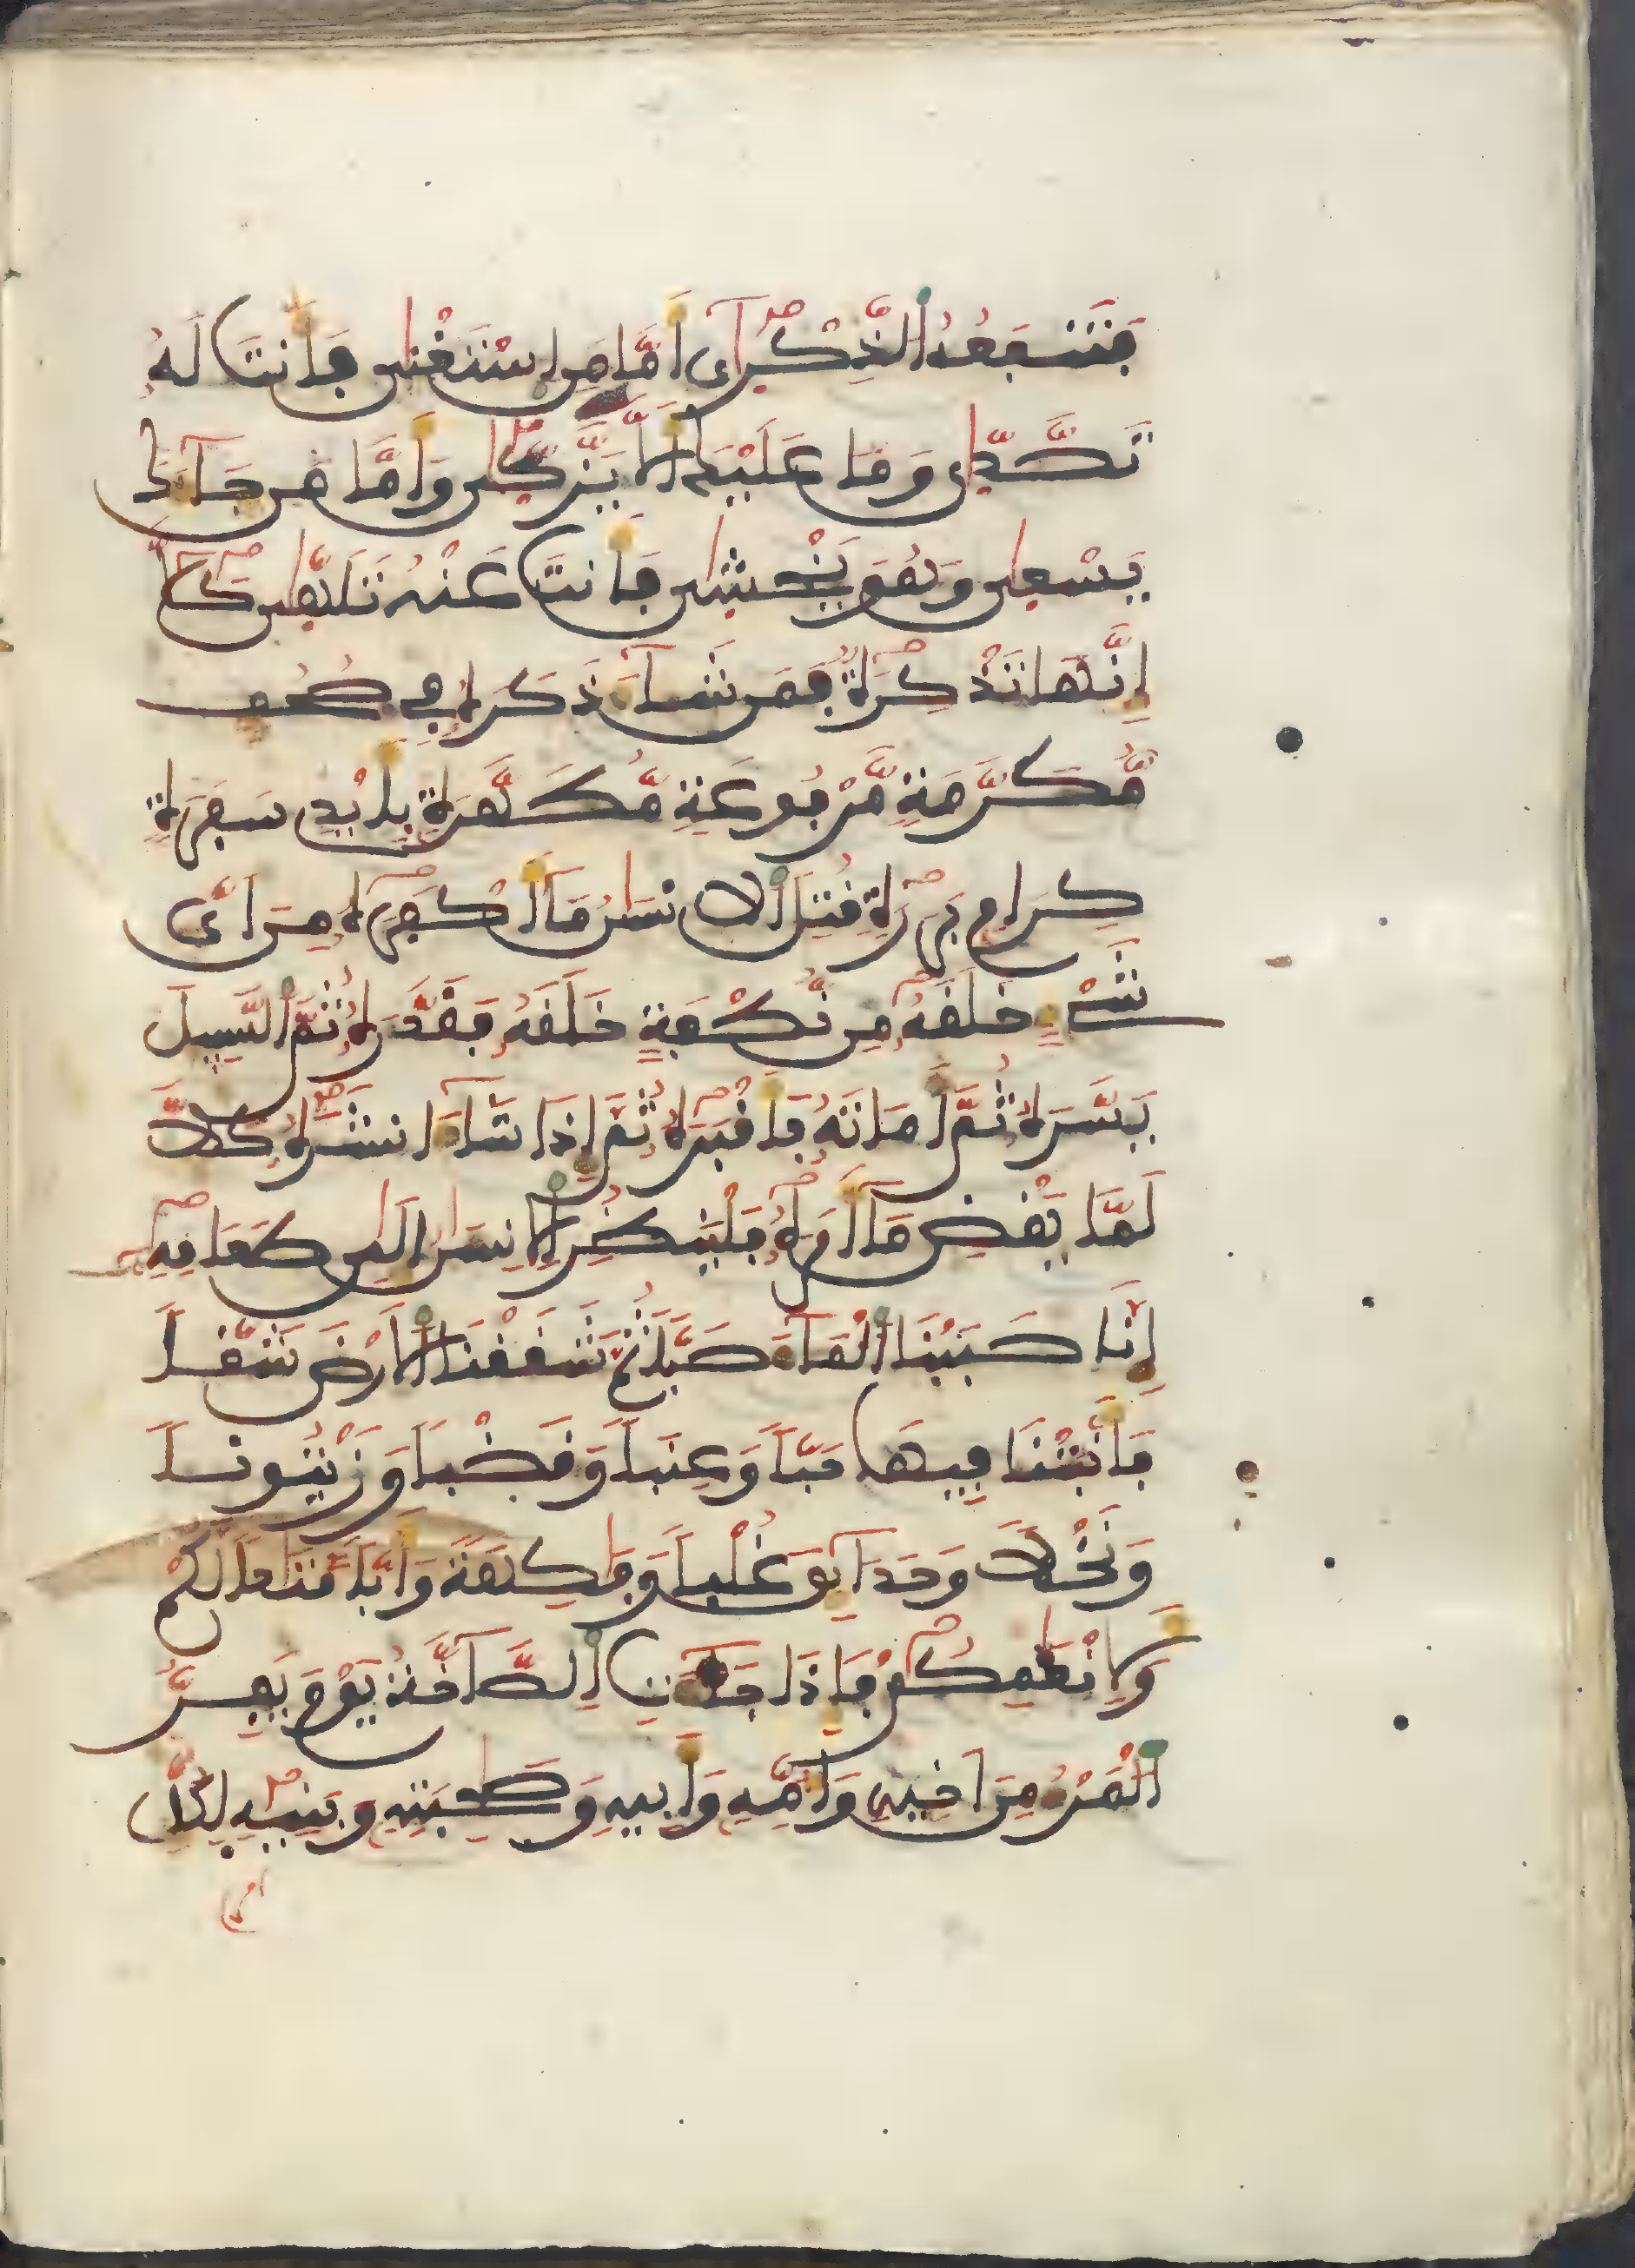 فَتَنفَعُهُ الذِّكْرَىٰ أَمَّا مَنِ اسْتَغْنَىٰ فَأَنتَ لَهُ
تَصَّدَّىٰ وَمَا عَلَيْكَ أَلَّا يَزَّكَّىٰ وَأَمَّا مَن جَآءَكَ
يَسْعَىٰ وَهُوَ يَخْشَىٰ فَأَنتَ عَنْهُ تَلَهَّىٰ كَلَّا
إِنَّهَا تَذْكِرَةٌ فَمَن شَآءَ ذَكَرَهُ فِي صُحُفٍ
مُّكَرَّمَةٍ مَّرْفُوعَةٍ مُّطَهَّرَةٍ بِأَيْدِي سَفَرَةٍ
كِرَامٍ بَرَرَةٍ قُتِلَ الْإِنسَٰنُ مَآ أَكْفَرَهُ مِنْ أَيِّ
شَيْءٍ خَلَقَهُ مِن نُّطْفَةٍ خَلَقَهُ فَقَدَّرَهُ ثُمَّ السَّبِيلَ
يَسَّرَهُ ثُمَّ أَمَاتَهُ فَأَقْبَرَهُ ثُمَّ إِذَا شَآءَ انشَرَهُ كَلَّا
لَمَّا يَقْضِ مَآ أَمَرَهُ فَلْيَنظُرِ الْإِنسَٰنُ إِلَىٰ طَعَامِهِ
إِنَّا صَبَبْنَا الْمَآءَ صَبًّا ثُمَّ شَقَقْنَا الْأَرْضَ شَقًّا
فَأَنبَتْنَا فِيهَا حَبًّا وَعِنَبًا وَقَضْبًا وَزَيْتُونًا
وَنَخْلًا وَحَدَآئِقَ غُلْبًا وَفَٰكِهَةً وَأَبًّا مَّتَٰعًا لَّكُمْ
وَلِأَنْعَٰمِكُمْ فَإِذَا جَآءَتِ الصَّآخَّةُ يَوْمَ يَفِرُّ
الْمَرْءُ مِنْ أَخِيهِ وَأُمِّهِ وَأَبِيهِ وَصَٰحِبَتِهِ وَبَنِيهِ لِكُلِّ